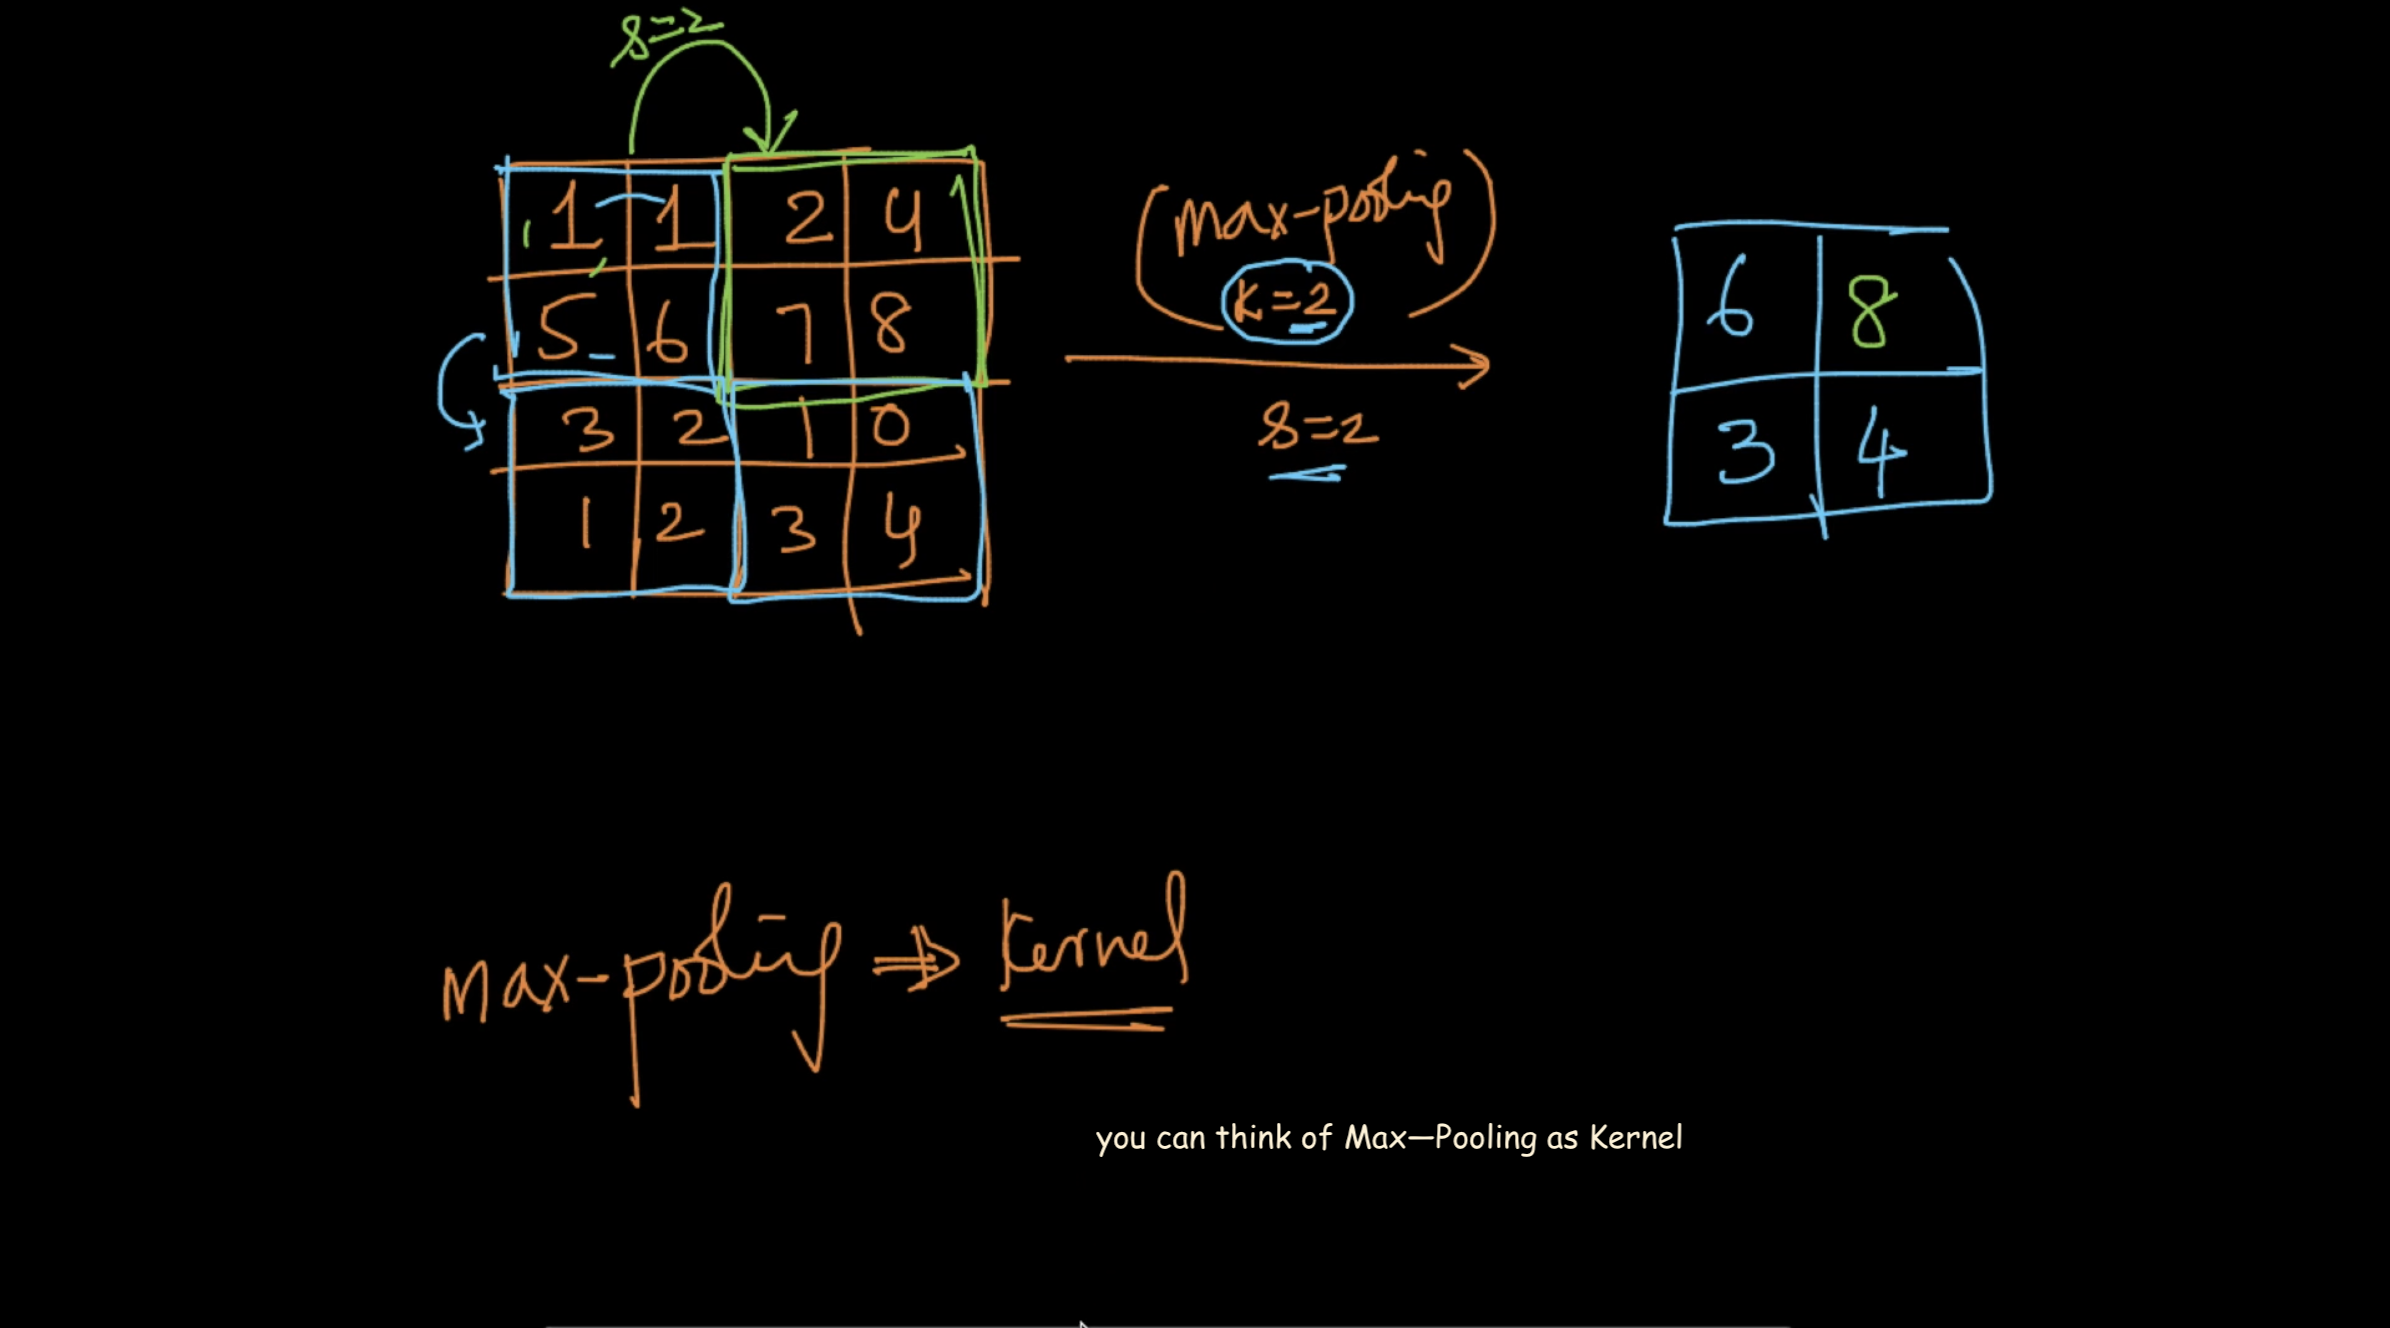 s=2
1 1 2 4
5 6 7 8
3 2 1 0
1 2 3 4
(max-pooling)
K=2
s=2
6 8
3 4
max-pooling ⇒ Kernel
you can think of Max—Pooling as Kernel